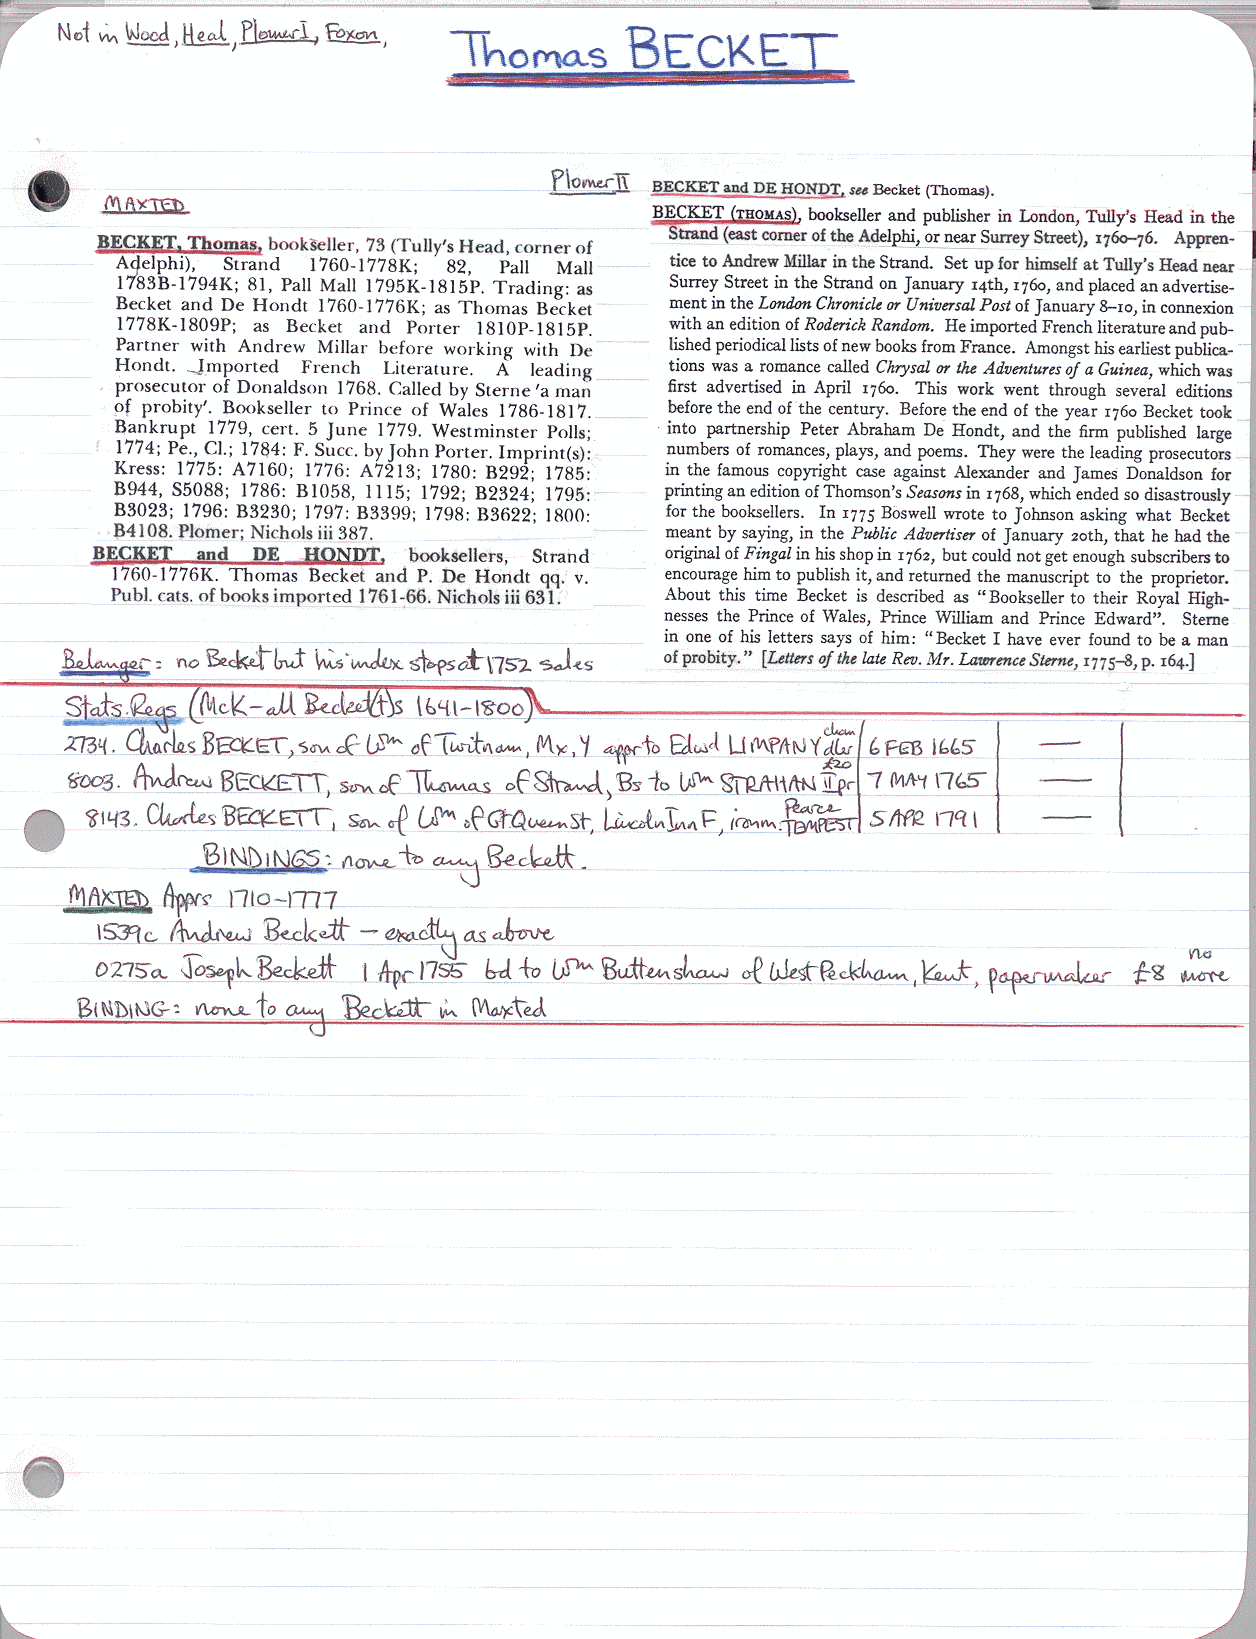 Not in Wood, Heal, Plomer I, Foxon,
Thomas BECKET
MAXTED
BECKET, Thomas, bookseller, 73 (Tully's Head, corner of
Adelphi), Strand 1760-1778K; 82, Pall Mall
1783B-1794K; 81, Pall Mall 1795K-1815P. Trading: as
Becket and De Hondt 1760-1776K; as Thomas Becket
1778K-1809P; as Becket and Porter 1810P-1815P.
Partner with Andrew Millar before working with De
Hondt. Imported French Literature. A leading
prosecutor of Donaldson 1768. Called by Sterne 'a man
of probity'. Bookseller to Prince of Wales 1786-1817.
Bankrupt 1779, cert. 5 June 1779. Westminster Polls;
1774; Pe., Cl.; 1784: F. Succ. by John Porter. Imprint(s):
Kress: 1775: A7160; 1776: A7213; 1780: B292; 1785:
B944, S5088; 1786: B1058, 1115; 1792; B2324; 1795:
B3023; 1796: B3230; 1797: B3399; 1798: B3622; 1800:
B4108. Plomer; Nichols iii 387.
BECKET and DE HONDT, booksellers, Strand
1760-1776K. Thomas Becket and P. De Hondt qq. v.
Publ. cats. of books imported 1761-66. Nichols iii 631.
Plomer II
BECKET and DE HONDT, see Becket (Thomas).
BECKET (THOMAS), bookseller and publisher in London, Tully's Head in the
Strand (east corner of the Adelphi, or near Surrey Street), 1760–76. Appren-
tice to Andrew Millar in the Strand. Set up for himself at Tully's Head near
Surrey Street in the Strand on January 14th, 1760, and placed an advertise-
ment in the London Chronicle or Universal Post of January 8–10, in connexion
with an edition of Roderick Random. He imported French literature and pub-
lished periodical lists of new books from France. Amongst his earliest publica-
tions was a romance called Chrysal or the Adventures of a Guinea, which was
first advertised in April 1760. This work went through several editions
before the end of the century. Before the end of the year 1760 Becket took
into partnership Peter Abraham De Hondt, and the firm published large
numbers of romances, plays, and poems. They were the leading prosecutors
in the famous copyright case against Alexander and James Donaldson for
printing an edition of Thomson's Seasons in 1768, which ended so disastrously
for the booksellers. In 1775 Boswell wrote to Johnson asking what Becket
meant by saying, in the Public Advertiser of January 20th, that he had the
original of Fingal in his shop in 1762, but could not get enough subscribers to
encourage him to publish it, and returned the manuscript to the proprietor.
About this time Becket is described as "Bookseller to their Royal High-
nesses the Prince of Wales, Prince William and Prince Edward". Sterne
in one of his letters says of him: "Becket I have ever found to be a man
of probity." [Letters of the late Rev. Mr. Lawrence Sterne, 1775–8, p. 164.]
Belanger: no Becket but his index stops at 1752 sales
Stats. Regs (McK – all Becket(t)s 1641–1800)
2734. Charles BECKET, son of Wm of Twitnam, Mx, Y appr to Edwd LIMPANY dler 6 FEB 1665 —
£20
8003. Andrew BECKETT, son of Thomas of Strand, Bs to Wm STRAHAN II pr 7 MAY 1765 —
8143. Charles BECKETT, son of Wm of Gt Queen St, Lincoln Inn F, ironm. Pearce TEMPEST 5 APR 1791 —
BINDINGS: none to any Beckett.
MAXTED Apprs 1710–1777
1539c Andrew Beckett – exactly as above
0275a Joseph Beckett 1 Apr 1755 bd to Wm Buttenshaw of West Peckham, Kent, papermaker £8 no more
BINDING: none to any Beckett in Maxted